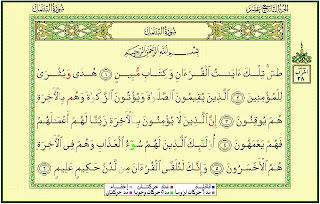 الجُزءُ التَّاسِعُ عَشَر
سُورَةُ النَّمْلِ
سُورَةُ النَّمْلِ
بِسْمِ ٱللَّهِ ٱلرَّحْمَٰنِ ٱلرَّحِيمِ
طسٓ تِلْكَ ءَايَٰتُ ٱلْقُرْءَانِ وَكِتَابٍ مُّبِينٍ ١ هُدًى وَبُشْرَىٰ
لِلْمُؤْمِنِينَ ٢ ٱلَّذِينَ يُقِيمُونَ ٱلصَّلَوٰةَ وَيُؤْتُونَ ٱلزَّكَوٰةَ وَهُم بِٱلْءَاخِرَةِ
هُمْ يُوقِنُونَ ٣ إِنَّ ٱلَّذِينَ لَا يُؤْمِنُونَ بِٱلْءَاخِرَةِ زَيَّنَّا لَهُمْ أَعْمَٰلَهُمْ
فَهُمْ يَعْمَهُونَ ٤ أُو۟لَٰٓئِكَ ٱلَّذِينَ لَهُمْ سُوٓءُ ٱلْعَذَابِ وَهُمْ فِى ٱلْءَاخِرَةِ
هُمُ ٱلْأَخْسَرُونَ ٥ وَإِنَّكَ لَتُلَقَّى ٱلْقُرْءَانَ مِن لَّدُنْ حَكِيمٍ عَلِيمٍ ٦
٣٨